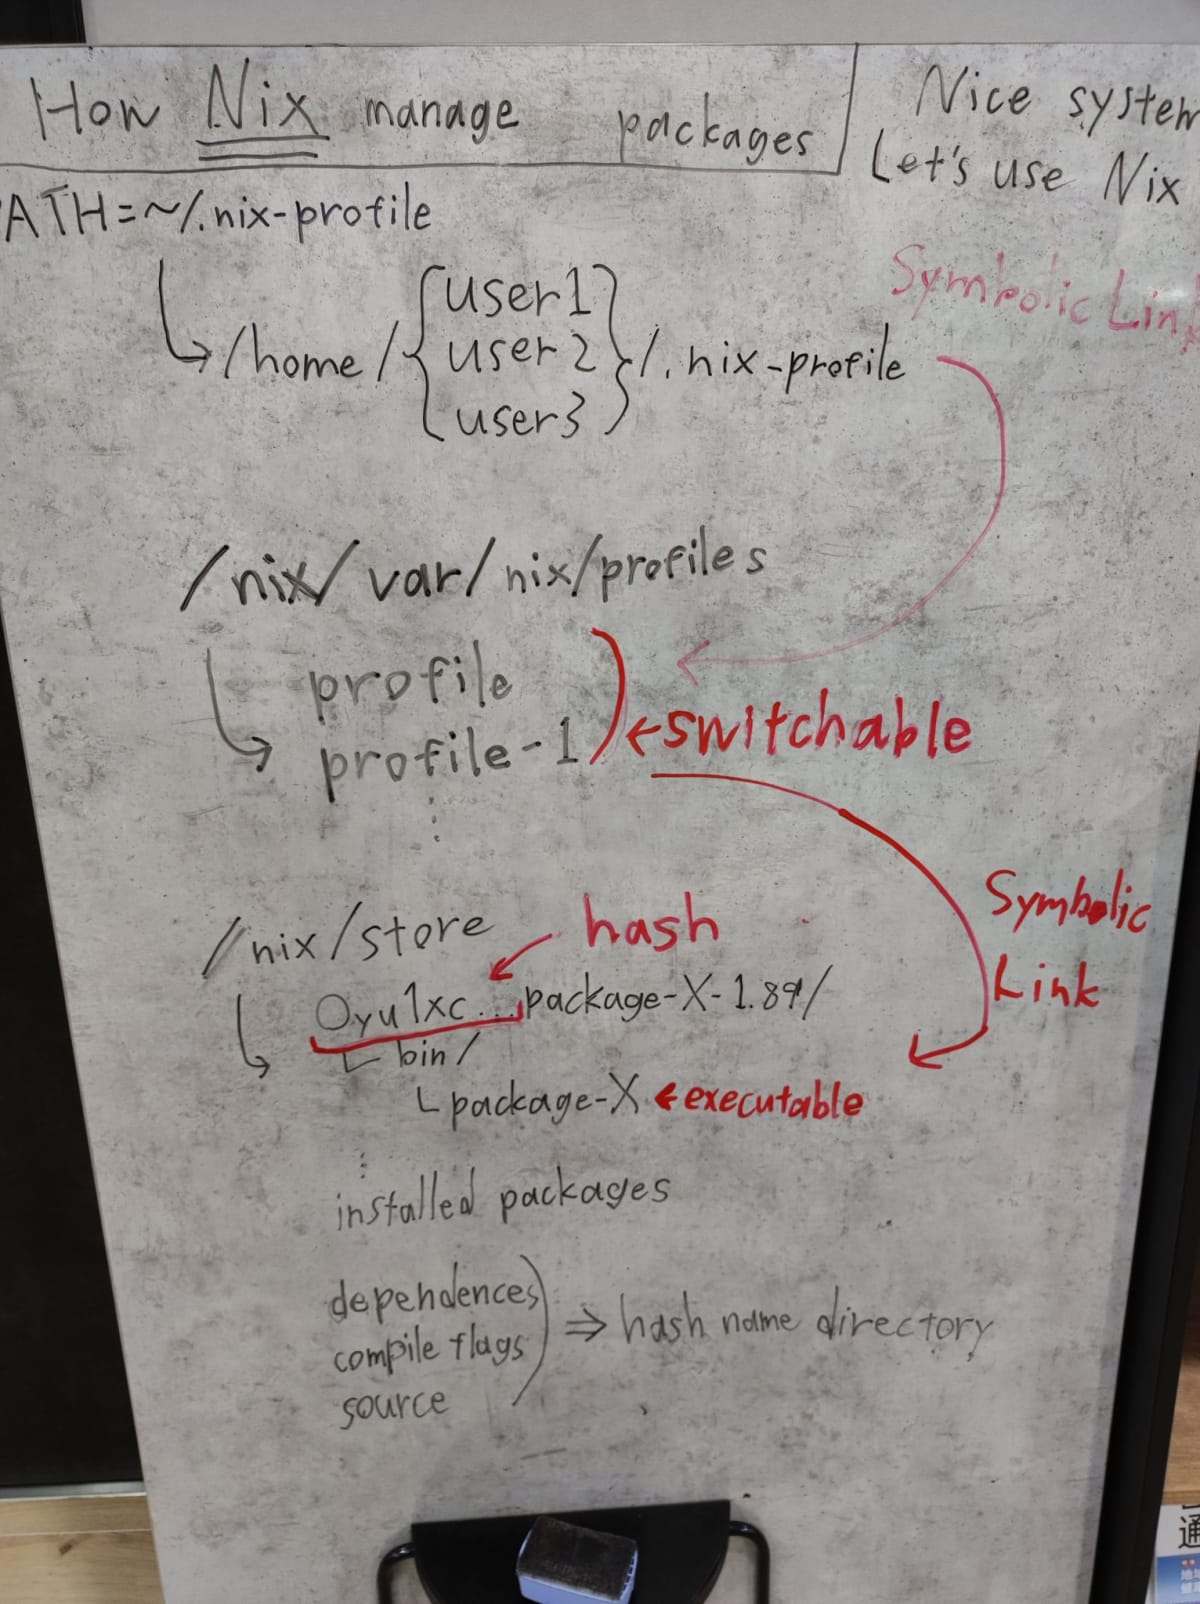 How Nix manage packages
Nice system
Let's use Nix
PATH=~/.nix-profile
Symbolic Link
/home/{user1
user2
user3}/.nix-profile
/nix/var/nix/profiles
profile
profile-1
←switchable
⋮
Symbolic
Link
/nix/store
hash
0yu1xc...package-X-1.89/
└ bin/
└ package-X ←executable
⋮
installed packages
dependences
compile flags
source
⇒ hash name directory
通